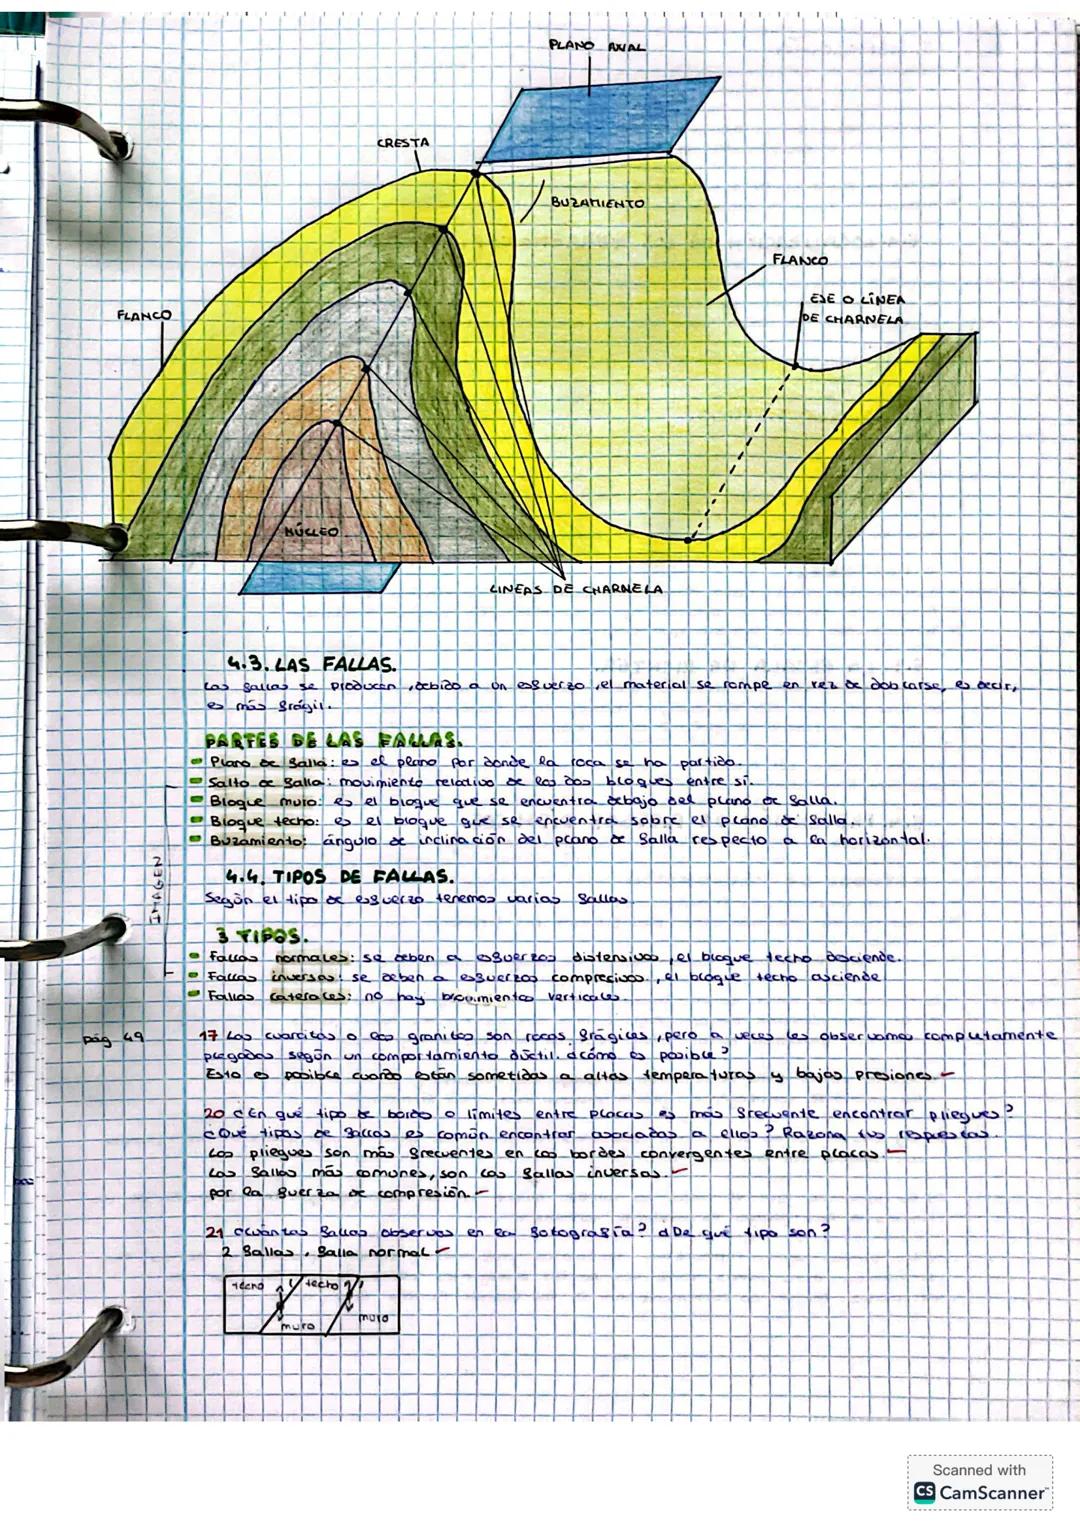 PLANO AXIAL
CRESTA
BUZAMIENTO
FLANCO
EJE O LÍNEA
DE CHARNELA
FLANCO
NÚCLEO
LINEAS DE CHARNELA
4.3. LAS FALLAS.
Las fallas se producen, debido a un esfuerzo, el material se rompe en vez de doblarse, es decir,
es más frágil.
PARTES DE LAS FALLAS.
Plano de falla: es el plano por donde la roca se ha partido.
Salto de falla: movimiento relativo de los dos bloques entre sí.
Bloque muro: es el bloque que se encuentra debajo del plano de falla.
Bloque techo: es el bloque que se encuentra sobre el plano de falla.
Buzamiento: ángulo de inclinación del plano de falla respecto a la horizontal.
IMAGEN
4.4. TIPOS DE FALLAS.
Según el tipo de esfuerzo tenemos varias fallas.
3 TIPOS.
Fallas normales: se deben a esfuerzos distensivos, el bloque techo desciende.
Fallas inversas: se deben a esfuerzos compresivos, el bloque techo asciende
Fallas laterales: no hay movimientos verticales.
pág 49
17 Las cuarcitas o los granitos son rocas frágiles, pero a veces les observamos completamente
plegadas según un comportamiento dúctil. ¿Cómo es posible?
Esto es posible cuando están sometidas a altas temperaturas y bajas presiones.
20 ¿En qué tipo de bordes o límites entre placas es más frecuente encontrar pliegues?
¿Qué tipos de fallas es común encontrar asociadas a ellos? Razona tus respuestas.
Los pliegues son más frecuentes en los bordes convergentes entre placas.
Las fallas más comunes, son las fallas inversas.
por la fuerza de compresión.
21 ¿Cuántas fallas observas en la fotografía? ¿De qué tipo son?
2 fallas, falla normal
techo
techo
muro
muro
Scanned with
CS CamScanner